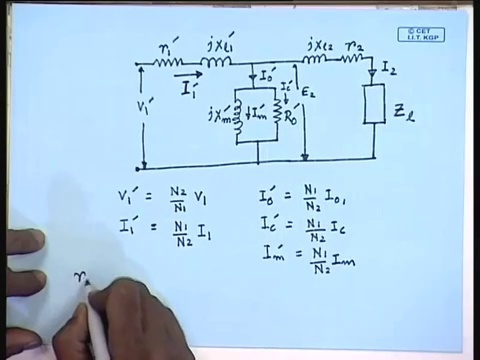 © CET
I.I.T. KGP
r₁′ jx_l₁′ jx_l₂ r₂
I₁′ I₀′ I₂
V₁′ jx_m′ I_m′ I_c′ R₀′ E₂ Z_l
V₁′ = N₂/N₁ V₁ I₀′ = N₁/N₂ I₀₁
I₁′ = N₁/N₂ I₁ I_c′ = N₁/N₂ I_c
I_m′ = N₁/N₂ I_m
r